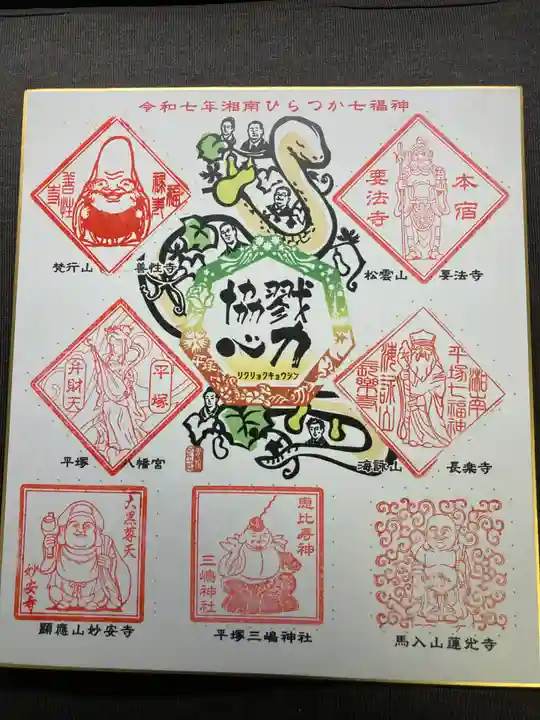 令和七年湘南ひらつか七福神
福禄寿
善性寺
梵行山 善性寺
本宿
要法寺
松雲山 要法寺
戮力
協心
リクリョクキョウシン
平塚
弁財天
平塚 八幡宮
湘南
平塚七福神
海詠山
長樂寺
海詠山 長楽寺
大黒尊天
妙安寺
顕應山妙安寺
恵比寿神
三嶋神社
平塚三嶋神社
馬入山蓮光寺